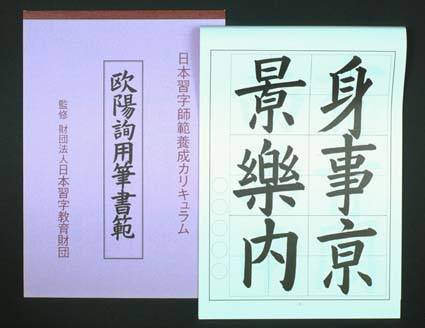 日本習字師範養成カリキュラム
欧陽詢用筆書範
監修 財団法人日本習字教育財団
身事京
景樂内